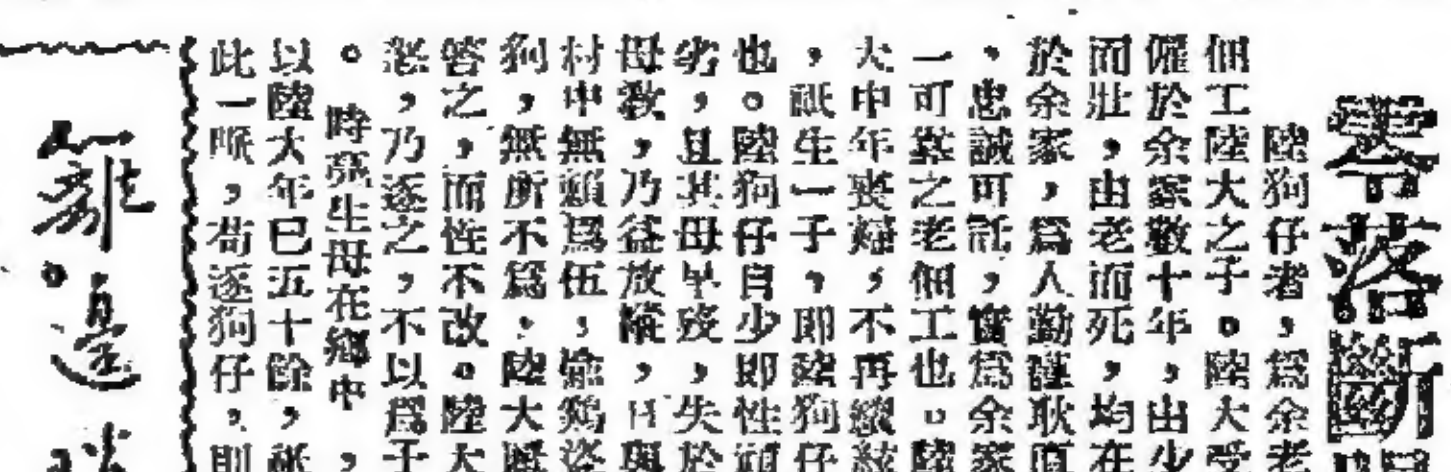 零落斷
陸狗仔者，爲余老
佃工陸大之子。陸大受
僱於余家數十年，由少
而壯，由老而死，均在
於余家，爲人勤謹耿直
，忠誠可託，實爲余家
一可靠之老佃工也。陸
大中年喪婦，不再續絃
，祇生一子，即陸狗仔
也。陸狗仔自少即性頑
劣，且其母早歿，失於
母教，乃益放縱，日與
村中無賴爲伍，偷鷄盜
狗，無所不爲，陸大
笞之，而性不改。陸大
怒，乃逐之，不以爲子
。時亮生母在鄉中，
以陸大年已五十餘，祇
此一脈，苟逐狗仔，則
籬邊